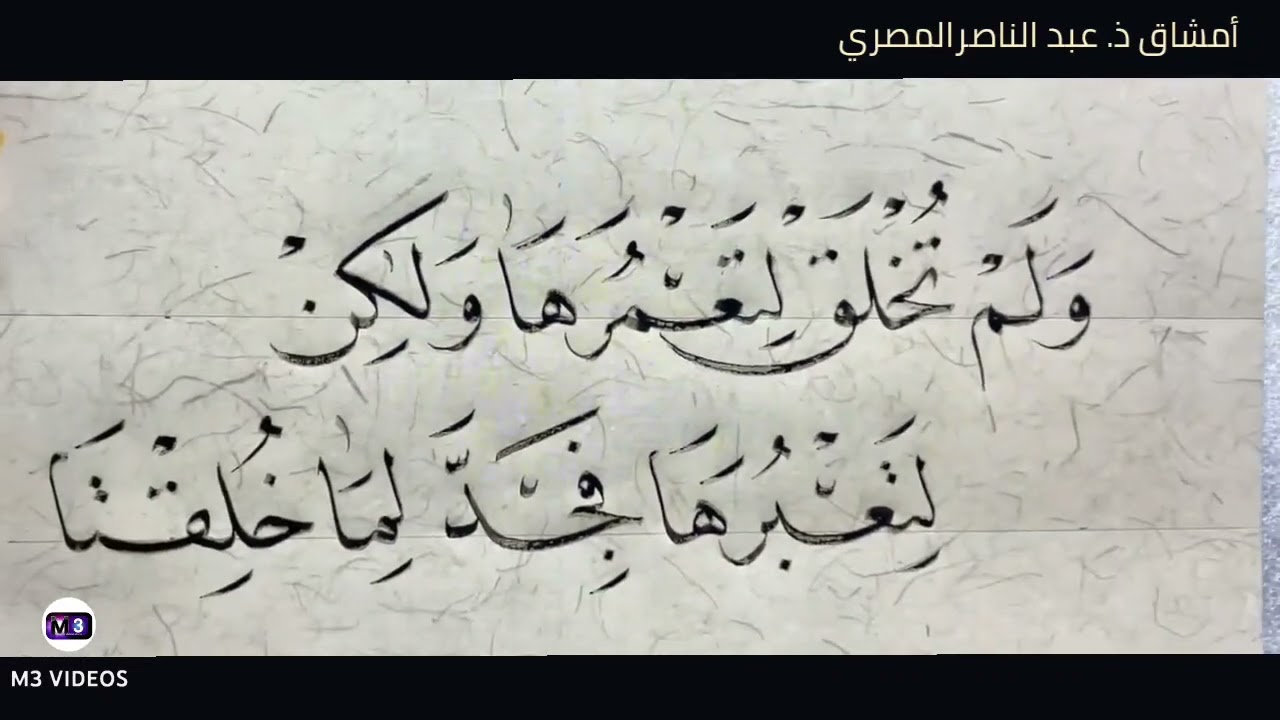 أمشاق ذ. عبد الناصر المصري
وَلَمْ تُخْلَقْ لِتَعْمُرَهَا وَلَكِنْ
لِتَعْبُرَهَا فَجِدَّ لِمَا خُلِقْتَا
M3
M3 VIDEOS